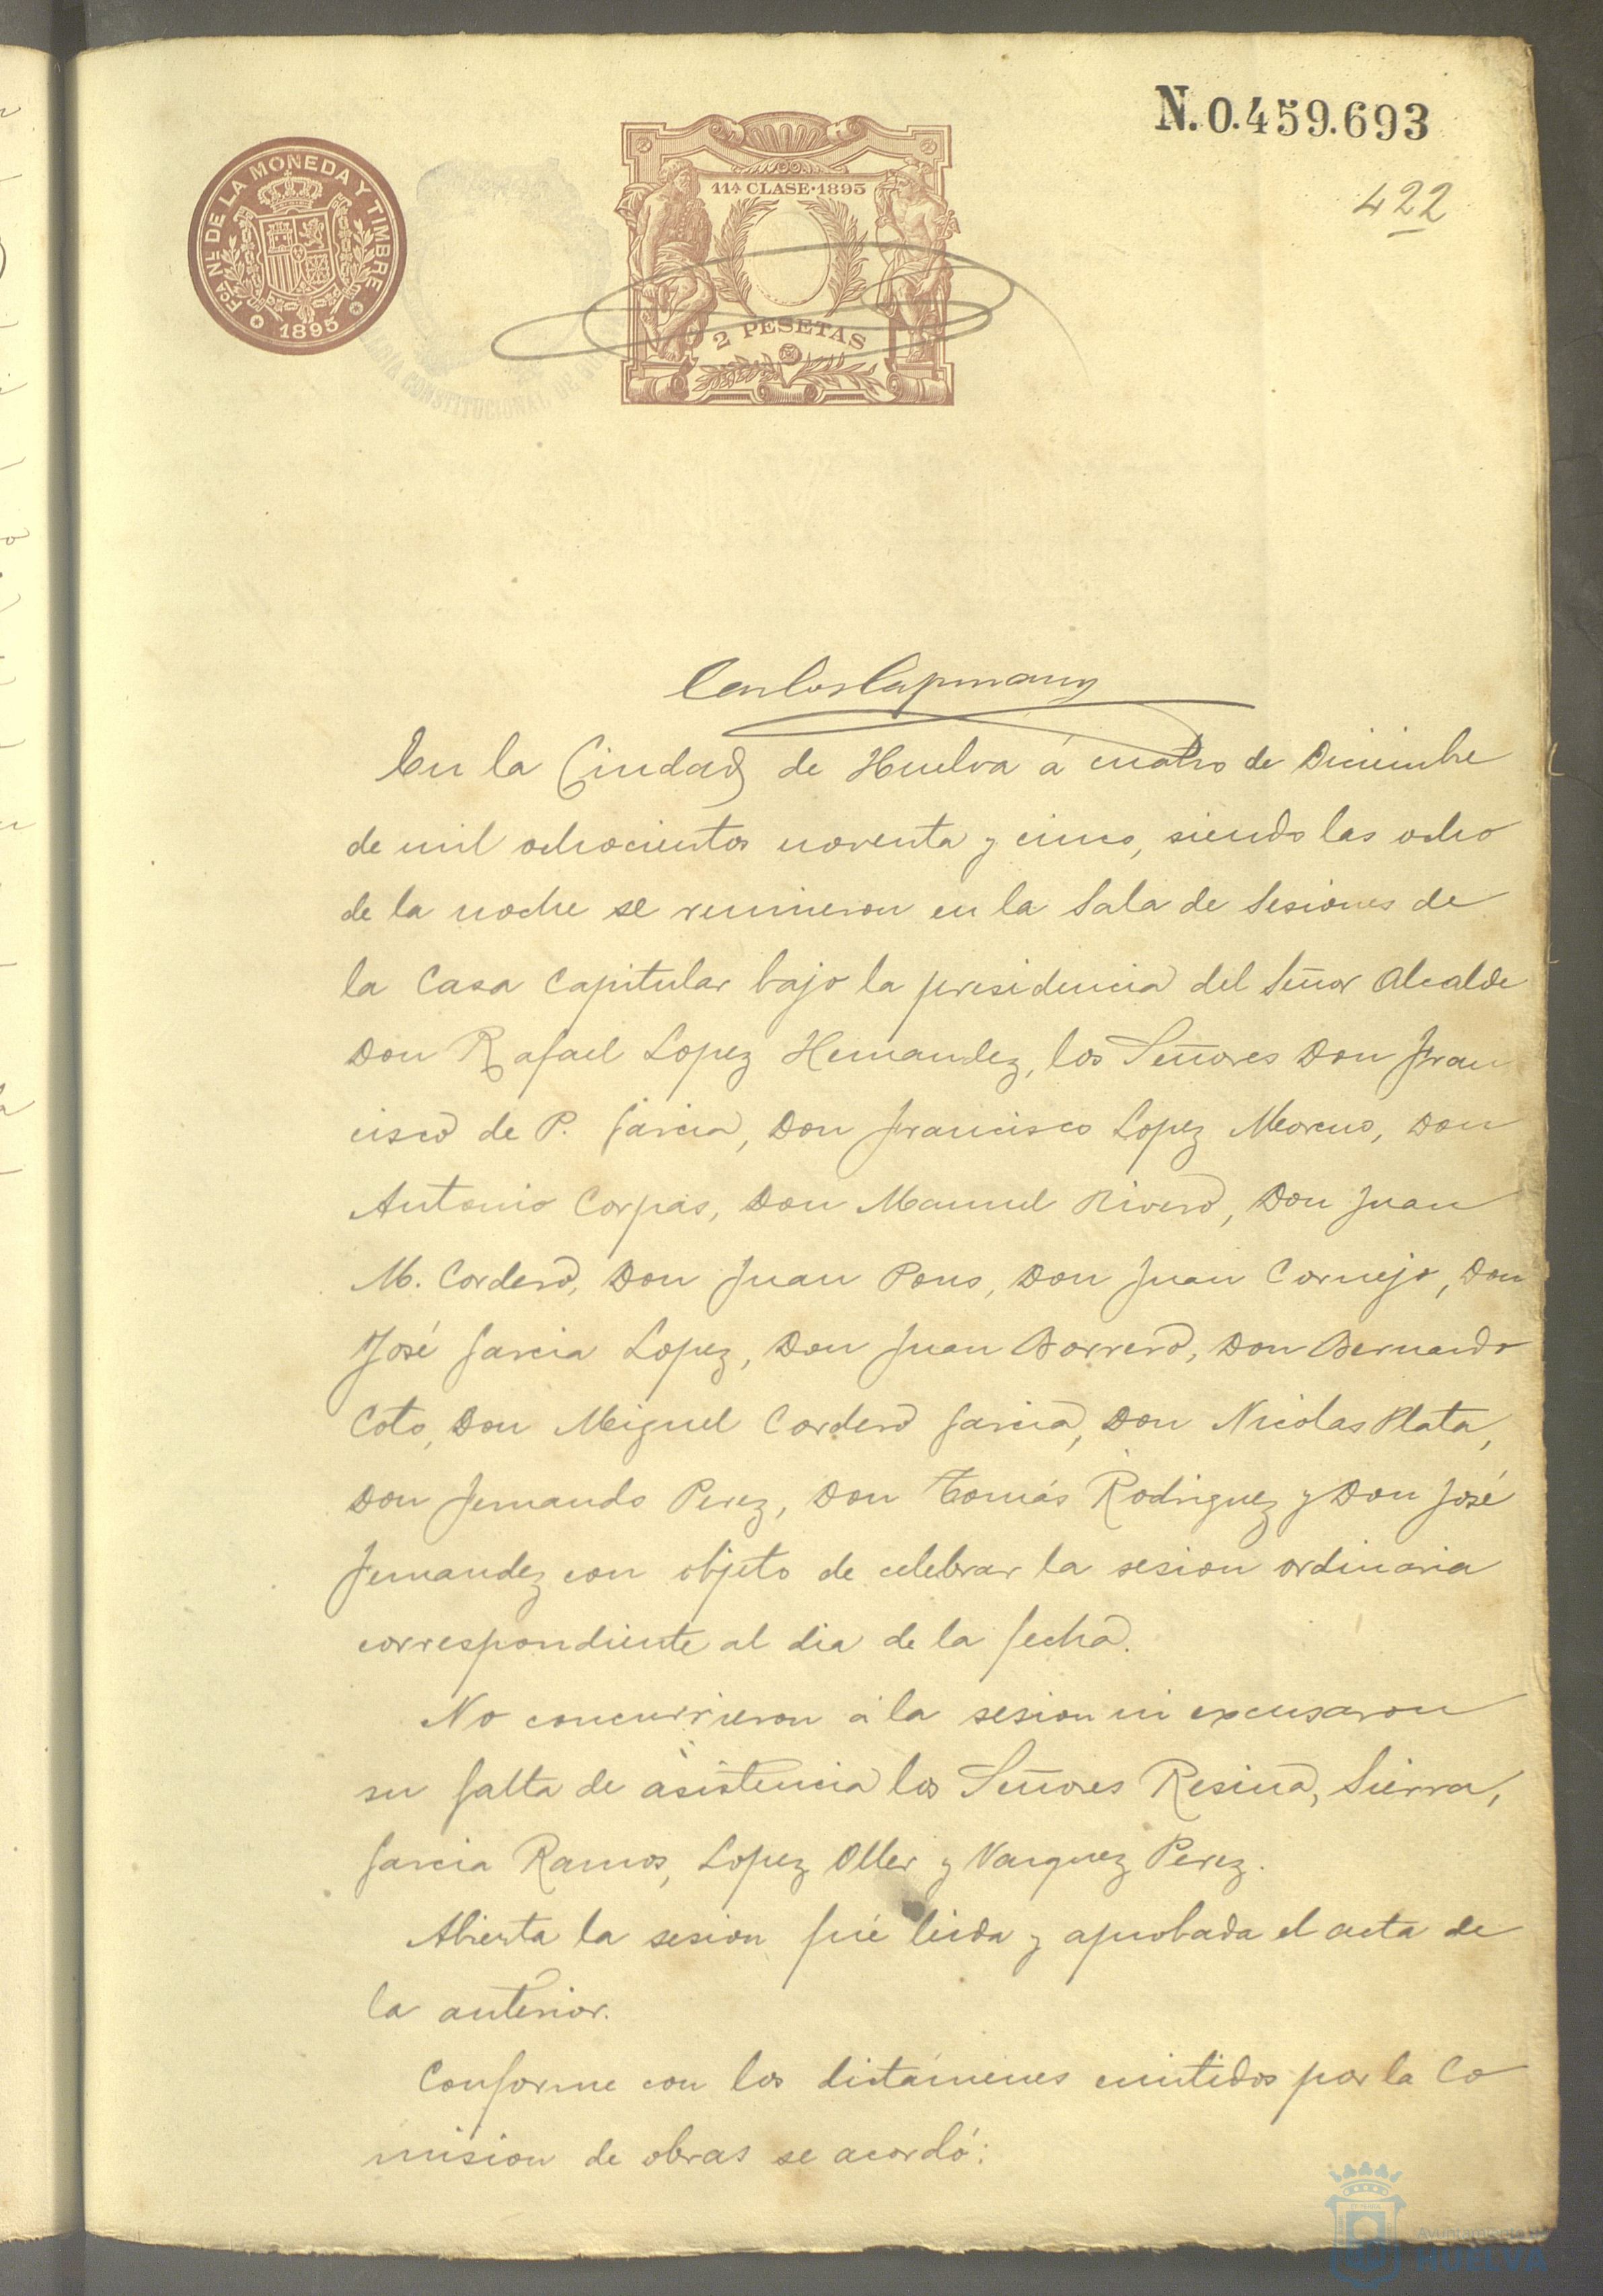 N. 0.459.693
422
FCA. NL. DE LA MONEDA Y TIMBRE
1895
11ª CLASE·1895
2 PESETAS
CONSTITUCIONAL DE
Carlos Capmany
En la Ciudad de Huelva á cuatro de Diciembre
de mil ochocientos noventa y cinco, siendo las ocho
de la noche se reunieron en la Sala de Sesiones de
la Casa Capitular bajo la presidencia del Señor Alcalde
Don Rafael Lopez Hernandez, los Señores Don Fran
cisco de P. Garcia, Don Francisco Lopez Moreno, Don
Antonio Corpas, Don Manuel Rivero, Don Juan
M. Cordero, Don Juan Pons, Don Juan Cornejo, Don
José Garcia Lopez, Don Juan Borrero, Don Bernardo
Coto, Don Miguel Cordero Garcia, Don Nicolas Plata,
Don Fernando Perez, Don Tomás Rodriguez y Don José
Fernandez con objeto de celebrar la sesion ordinaria
correspondiente al dia de la fecha.
No concurrieron á la sesion ni excusaron
su falta de asistencia los Señores Resina, Sierra,
Garcia Ramos, Lopez Oller y Vazquez Perez.
Abierta la sesion fué leida y aprobada el acta de
la anterior.
Conforme con los dictámenes emitidos por la Co
mision de obras se acordó:
Ayuntamiento de
HUELVA